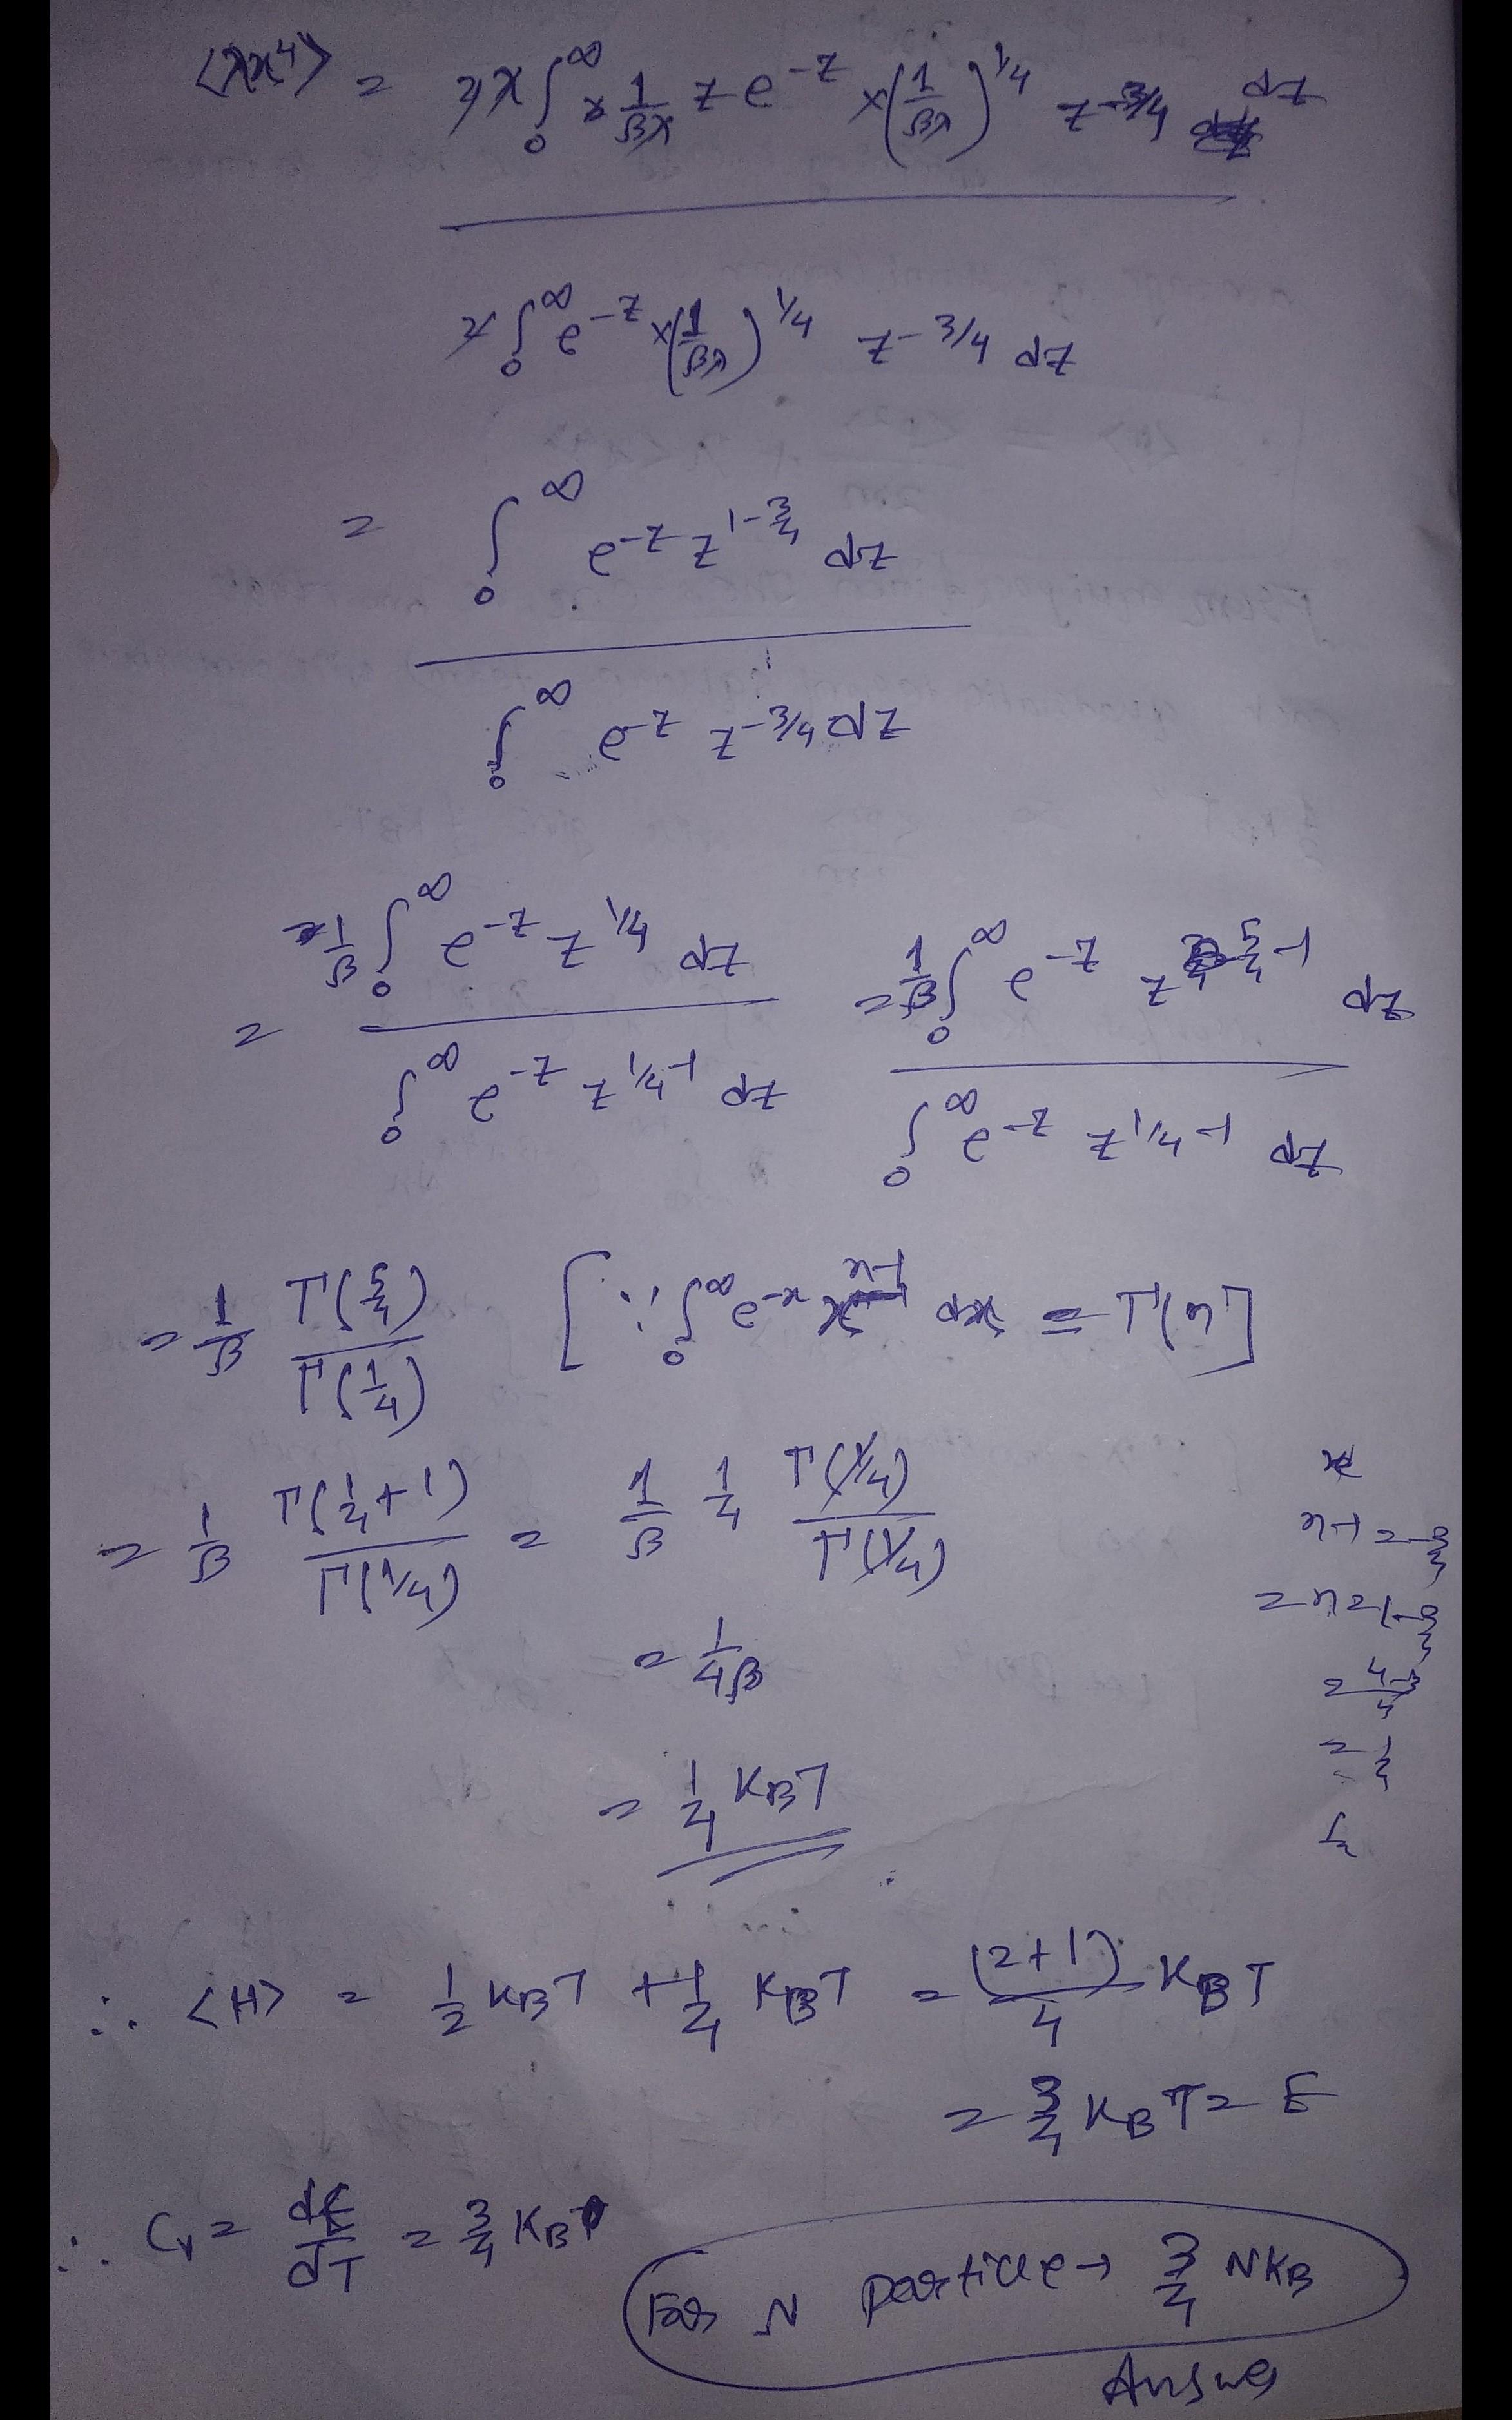 <λx⁴> = 2λ∫₀^∞ × 1/βλ z e^-z × (1/βλ)^1/4 z^-3/4 dz
2∫₀^∞ e^-z × (1/βλ)^1/4 z^-3/4 dz
= ∫₀^∞ e^-z z^1-3/4 dz
∫₀^∞ e^-z z^-3/4 dz
= 1/β ∫₀^∞ e^-z z^1/4 dz = 1/β ∫₀^∞ e^-z z^5/4-1 dz
∫₀^∞ e^-z z^1/4-1 dz ∫₀^∞ e^-z z^1/4-1 dz
= 1/β Γ(5/4)/Γ(1/4) [∵ ∫₀^∞ e^-x x^n-1 dx = Γ(n)]
= 1/β Γ(1/4+1)/Γ(1/4) = 1/β 1/4 Γ(1/4)/Γ(1/4)
n-1 = -3/4
= n = 1-3/4
= 1/4β
= 4-3/4
= 1/4
= 1/4 KBT
∴ <H> = 1/2 KBT + 1/4 KBT = (2+1)/4 KBT
= 3/4 KBT = E
∴ Cv = dE/dT = 3/4 KB
For N particle → 3/4 NKB
Answer